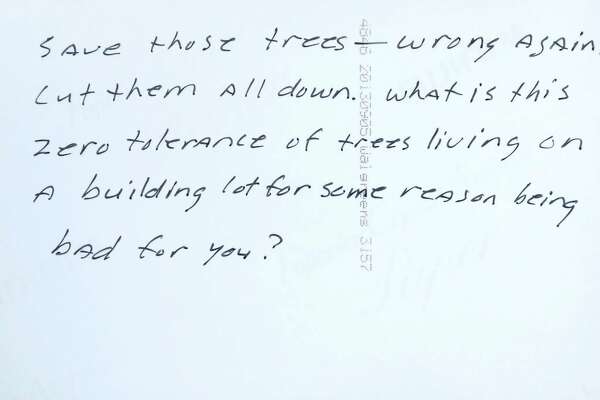 Save those trees — wrong again.
Cut them all down. What is this
zero tolerance of trees living on
a building lot for some reason being
bad for you?
20130905 Walgreens 3157